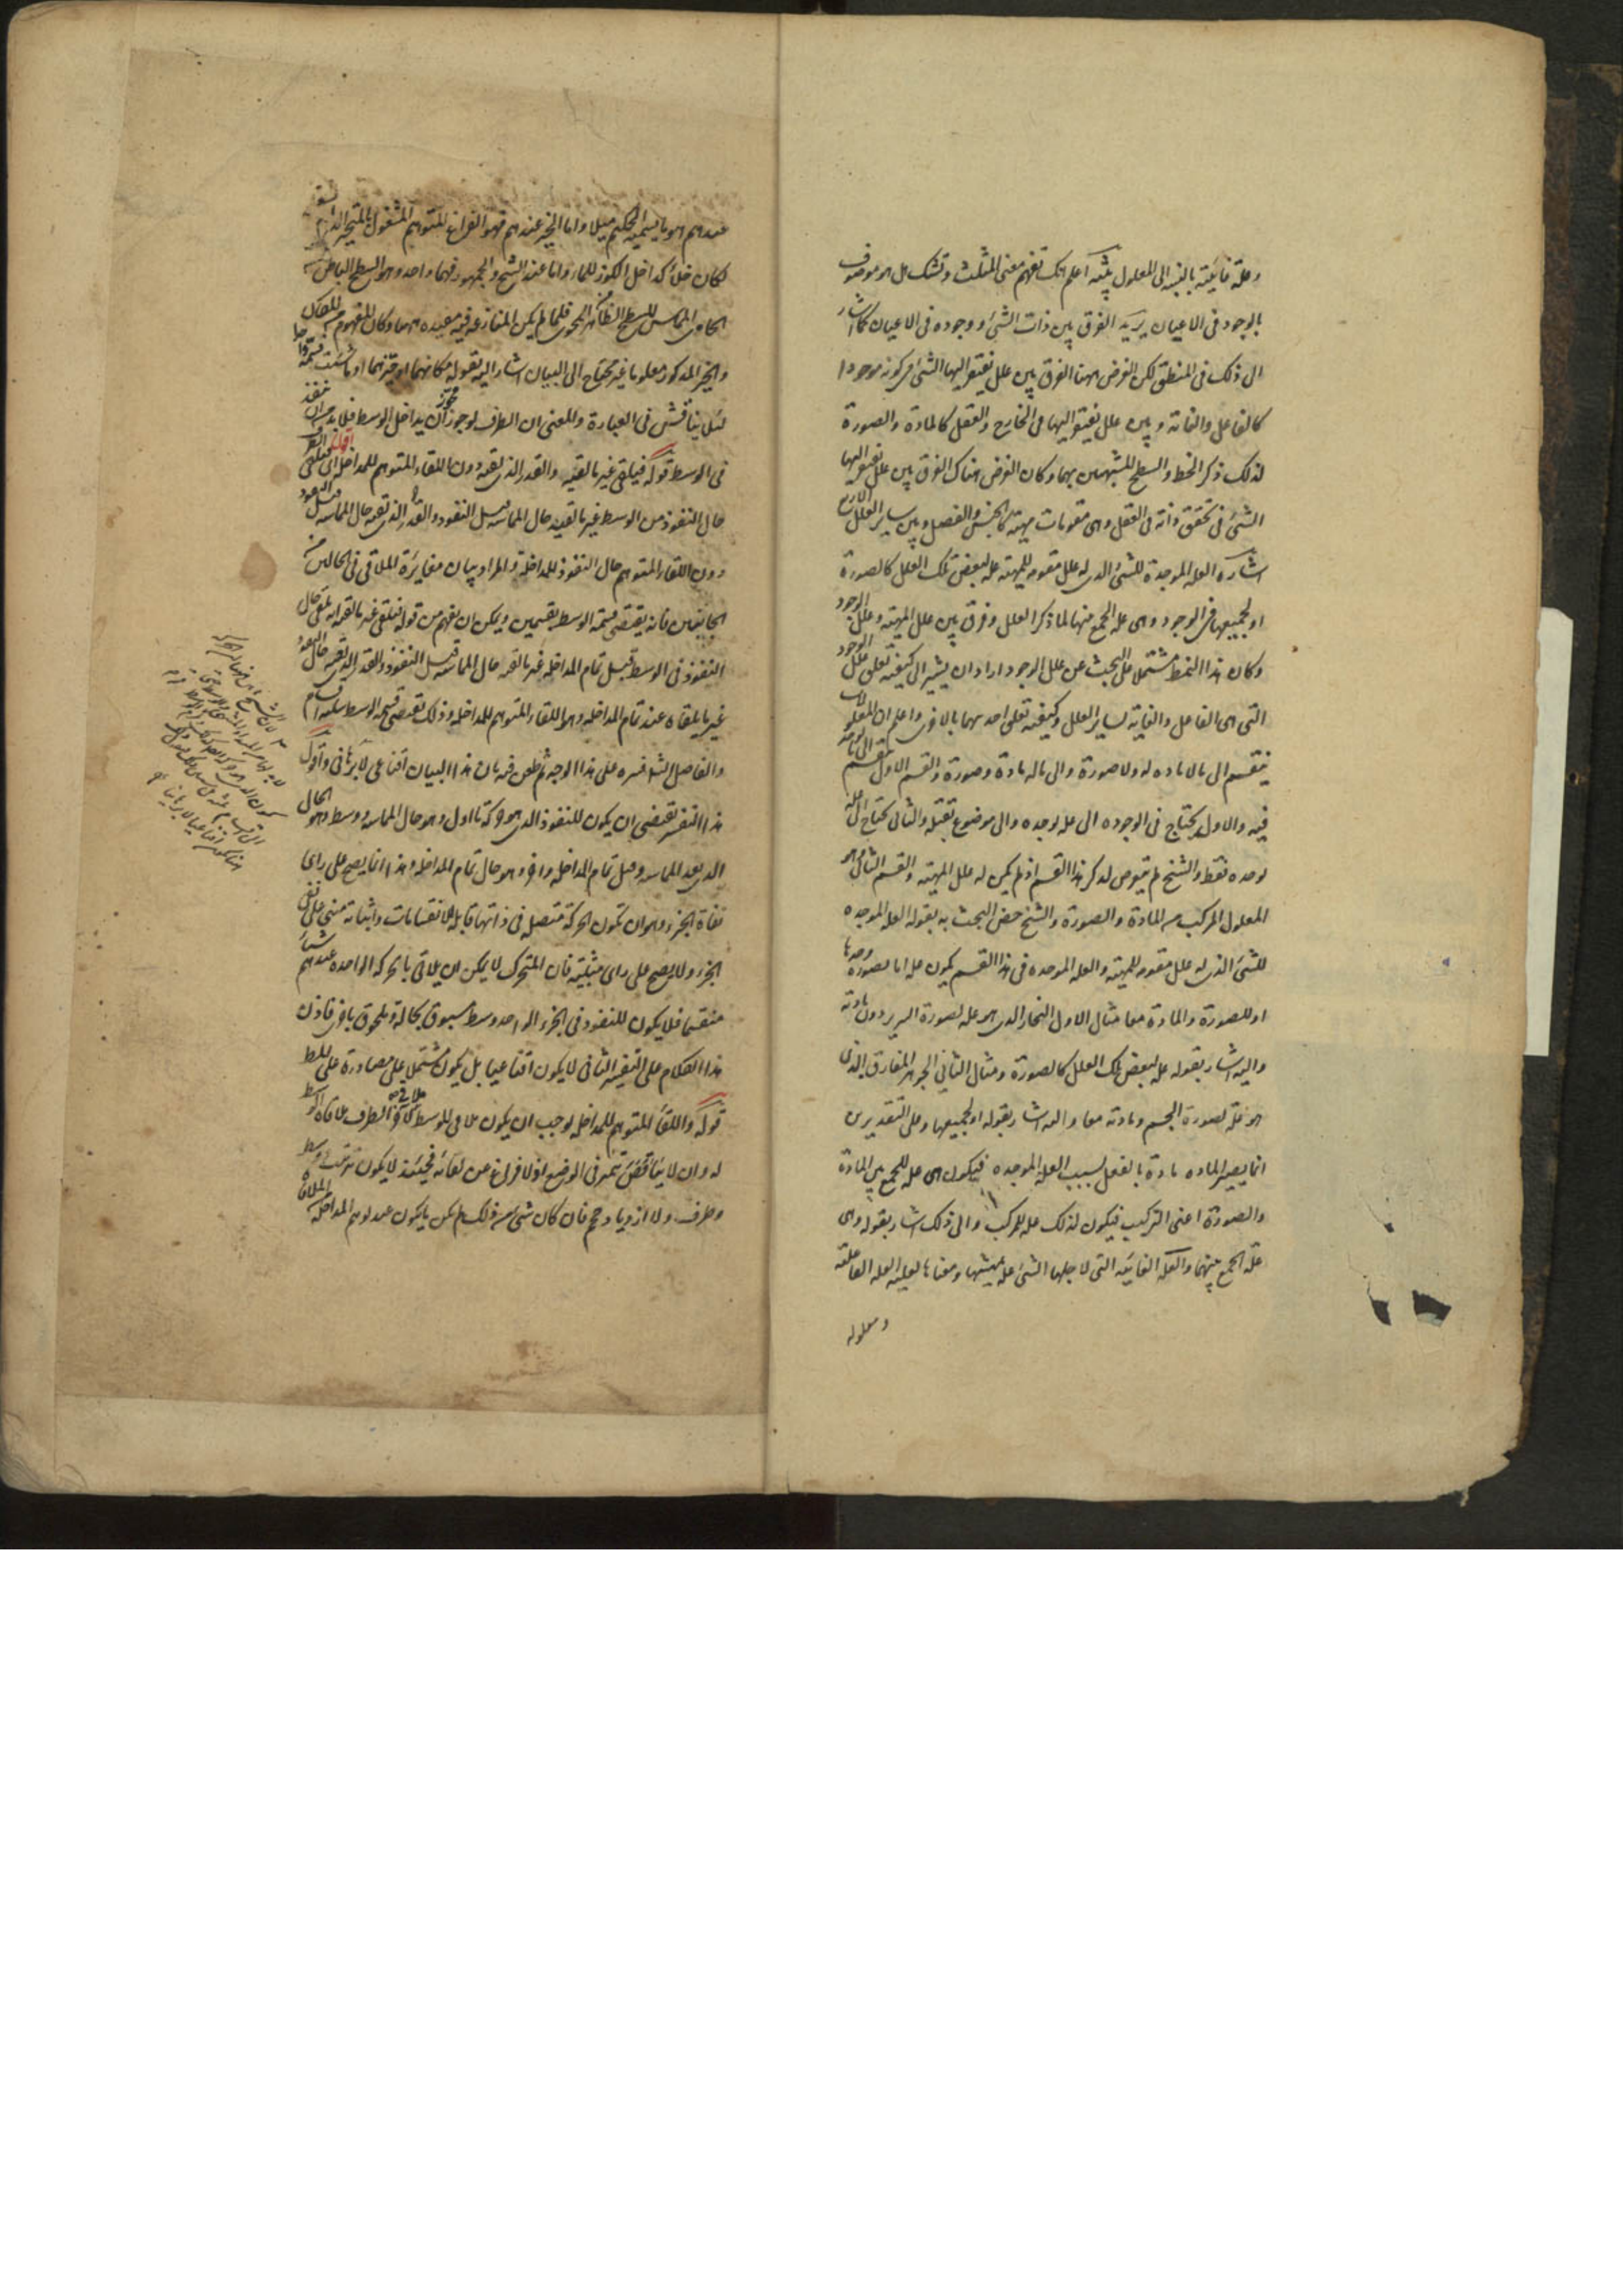 وعلة غائية بالنسبة الى المعلول تنبيه اعلم انك تفهم معنى المثلث وتشك هل هو موصوف
بالوجود فى الاعيان يريد الفرق بين ذات الشئ ووجوده فى الاعيان كما اشار
الى ذلك فى المنطق لكن الغرض ههنا الفرق بين علل يفتقر اليها الشئ فى كونه موجودا
كالفاعل والغاية وبين علل يفتقر اليها فى الخارج والعقل كالمادة والصورة
لذلك ذكر الخط والسطح المشبهين بهما وكان الغرض هناك الفرق بين علل يفتقر اليها
الشئ فى تحقق ذاته فى العقل وهى مقومات مهيته كالجنس والفصل وبين ساير العلل
اشارة العلة الموجدة للشئ الذى له علل مقومه للمهية علة لبعض تلك العلل كالصورة
او لجميعها فى الوجود وهى علة الجمع بينها لما ذكر العلل وفرق بين علل المهية وعلل الوجود
وكان هذا النمط مشتملا على البحث عن علل الوجود اراد ان يشير الى كيفية تعلق علل الوجود
التى هى الفاعل والغاية بساير العلل وكيفية تعلق احديهما بالاخرى واعلم ان المعلول
ينقسم الى ما لا مادة له ولا صورة والى ما له مادة وصورة والقسم الاول ينقسم الى ما
فيه والاول يحتاج فى الوجود الى علة توجده والى موضوع يقبله والثانى يحتاج الى علة
توجده فقط والشيخ لم يتعرض لذكر هذا القسم اذ لم يكن له علل المهية والقسم الثانى هو
المعلول المركب من المادة والصورة والشيخ خص البحث به بقوله العلة الموجدة
للشئ الذى له علل مقومه للمهية والعلة الموجدة فى هذا القسم يكون علة اما للصورة وحدها
او للصورة والمادة معا مثال الاول النجار الذى هو علة لصورة السرير دون مادته
واليه اشار بقوله علة لبعض تلك العلل كالصورة ومثال الثانى الجوهر المفارق الذى
هو علة لصورة الجسم ومادته معا واليه اشار بقوله او لجميعها وعلى التقديرين
انما يصير المادة مادة بالفعل بسبب العلة الموجدة فيكون هى علة للجمع بين المادة
والصورة اعنى التركيب فيكون لذلك علة للمركب والى ذلك اشار بقوله وهى
علة الجمع بينهما والعلة الغائية التى لاجلها الشئ علة بمهيتها ومعناها لعلية العلة الفاعلة
ومعلولة
عندهم هو ما يسميه الحكيم ميلا واما الحيز عندهم فهو الفراغ المتوهم المشغول بالمتحيز الذى
لكان خلأ كداخل الكوز للماء واما عند الشيخ والجمهور فهما واحد وهو السطح الباطن
الحاوى المماس للسطح الظاهر المحوى فلما لم يكن المنازعة فيه مفيدة ههنا وكان المفهوم
والحيز المذكور معلوما غير محتاج الى البيان اشار اليه بقوله مكانهما او حيزهما او ما شئت فسمه
لئلا يناقش فى العبارة والمعنى ان الطرف لو جوز ان يداخل الوسط فلا بد من ان ينفذ
فى الوسط قوله فيلقى غير ما لقيه والقدر الذى لقيه دون اللقاء المتوهم للمداخلة
حال النفوذ من الوسط غير ما لقيه حال المماسة قبل النفوذ والقدر الذى لقيه حال المماسة
دون اللقاء المتوهم حال النفوذ للمداخلة والمراد بيان مغايرة الملاقى فى الحالين
الجانبين فانه يقتضى قسمة الوسط بقسمين ويمكن ان يفهم من قوله فيلقى غير ما لقيه انه يلقى حال
النفوذ فى الوسط قبل تمام المداخلة غير ما لقيه حال المماسة قبل النفوذ والقدر الذى لقيه حال
غير ما يلقاه عند تمام المداخلة وهو اللقاء المتوهم للمداخلة وذلك يقتضى قسمة الوسط بثلثة اقسام
والفاضل الشارح فسره على هذا الوجه ثم طعن فيه بان هذا البيان اقناعى لا برهانى واقول
هذا التفسير يقتضى ان يكون للنفوذ الذى هو حركة ما اول وهو حال المماسة ووسط وهو الحال
الذى بعد المماسة وقبل تمام المداخلة واخر وهو حال تمام المداخلة وهذا انما يصح على راى
نفاة الجزء وهو ان تكون الحركة متصلة فى ذاتها قابلة للانقسامات واثباته مبنى على نفى
الجزء ولا يصح على راى مثبتيه فان المتحرك لا يمكن ان يلاقى بالحركة الواحدة عندهم شيئا
منقسما فلا يكون للنفوذ فى الجزء الواحد وسط مسبوق بحالة وملحوق باخرى فاذن
هذا الكلام على التفسير الثانى لا يكون اقناعيا بل يكون مشتملا على مصادرة على المط
قوله واللقاء المتوهم للمداخلة يوجب ان يكون ملاقى الوسط ملاقى الطرف ملاقاة الوسط
له وان لا يتناقض يتميز فى الوضع اذ لا فراغ عن لقائه فحينئذ لا يكون ترتيب ووسط
وطرف ولا ازدياد حجم فان كان شئ من ذلك لم يكن ما يكون عند توهم المداخلة